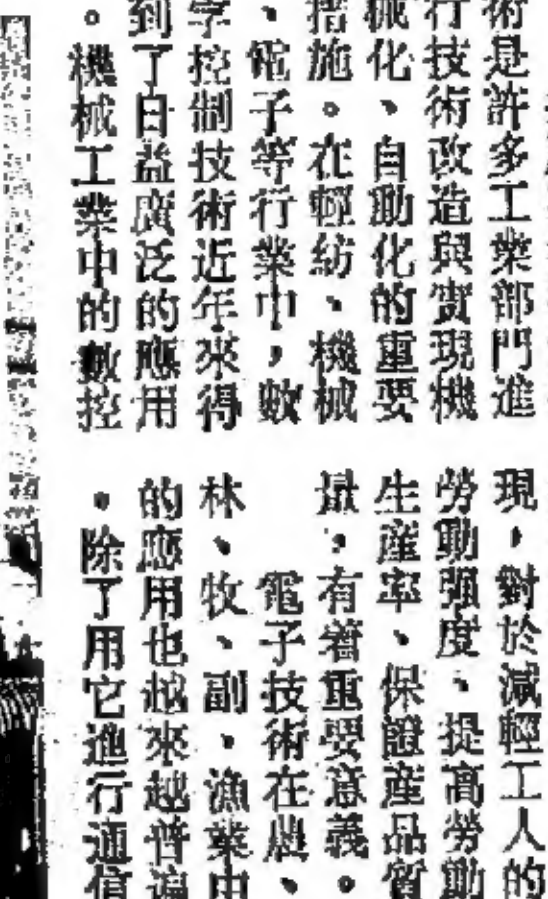 術是許多工業部門進
行技術改造與實現機
械化、自動化的重要
措施。在輕紡、機械
、電子等行業中,數
字控制技術近年來得
到了日益廣泛的應用
。機械工業中的數控
現,對於減輕工人的
勞動强度、提高勞動
生産率、保證産品質
量,有着重要意義。
電子技術在農、
林、牧、副、漁業中
的應用也越來越普遍
。除了用它進行通信